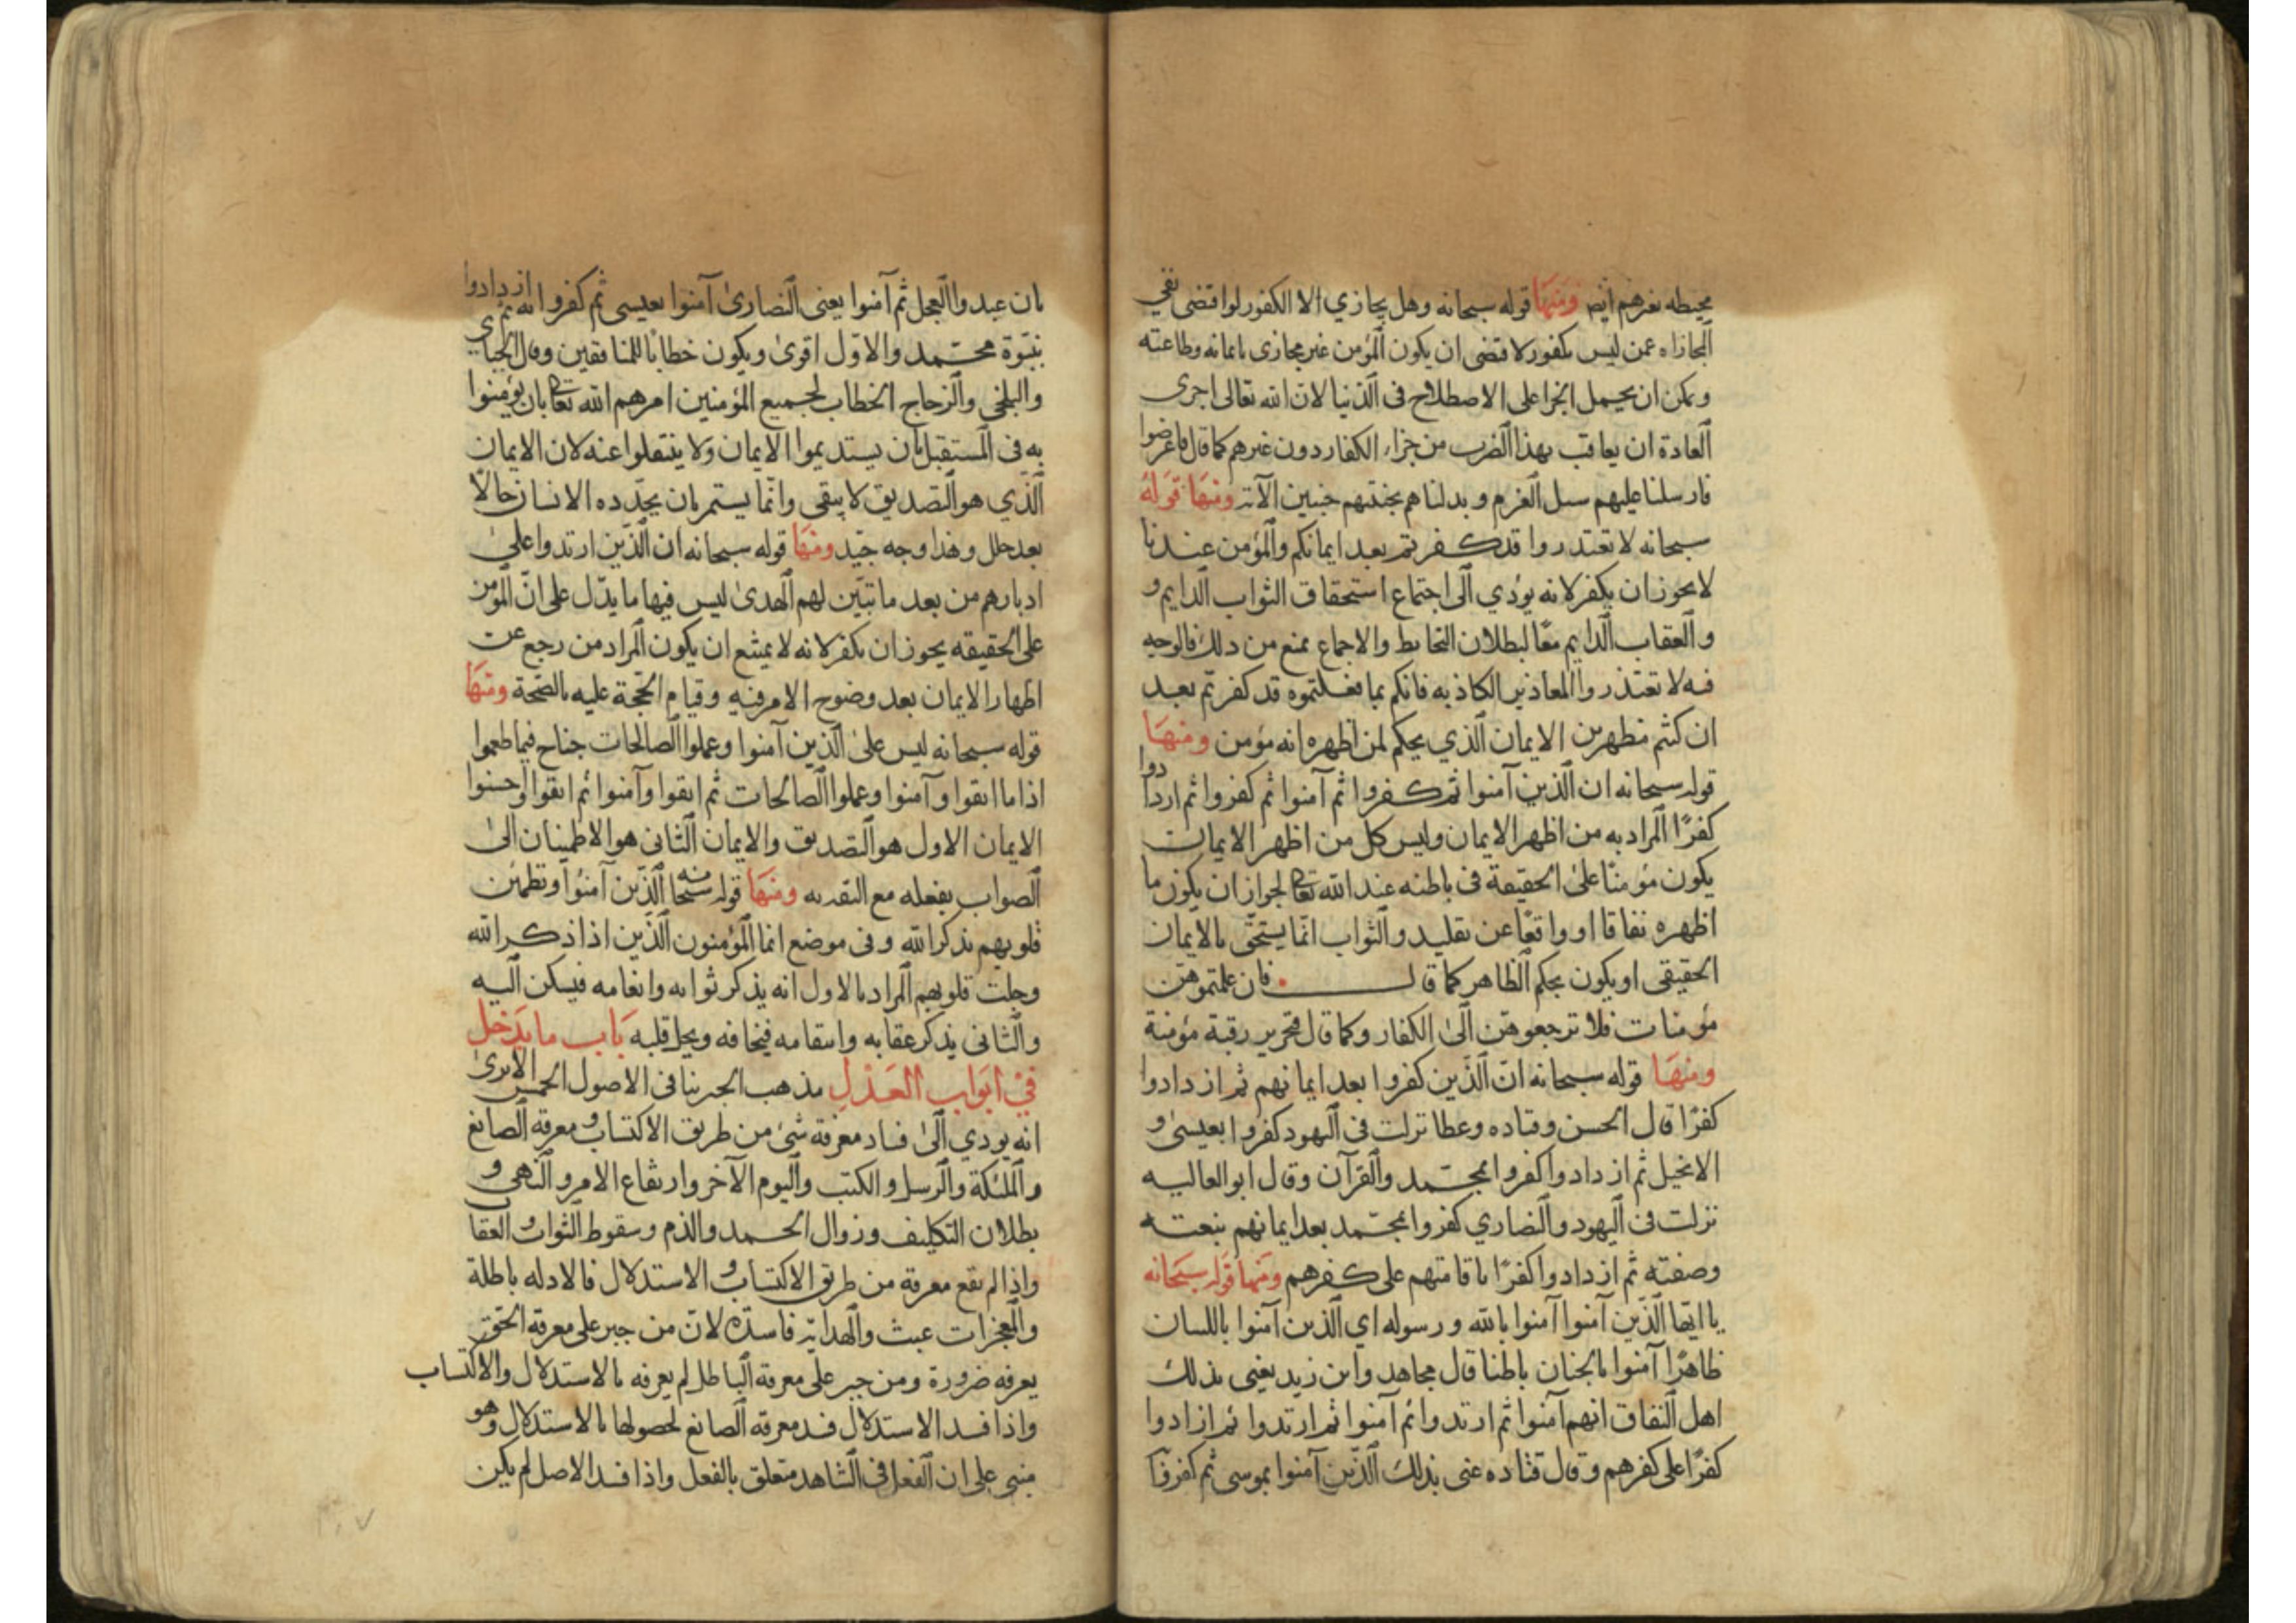 محيطه بغيرهم ايضا ومنها قوله سبحانه وهل يجازي الا الكفور لو اقتضى نفي
المجازاه عمن ليس بكفور لاقتضى ان يكون المؤمن غير مجازى بايمانه وطاعته
ويمكن ان يحمل الجزا على الاصطلاح في الدنيا لان الله تعالى اجرى
العادة ان يعاقب بهذا الضرب من جزاء الكفار دون غيرهم كما قال فاعرضوا
فارسلنا عليهم سيل العرم وبدلناهم بجنتيهم جنتين الآية ومنها قوله
سبحانه لا تعتذروا قد كفرتم بعد ايمانكم والمؤمن عندنا
لا يجوز ان يكفر لانه يؤدي الى اجتماع استحقاق الثواب الدايم و
والعقاب الدايم معًا لبطلان التحابط والاجماع يمنع من ذلك فالوجه
فيه لا تعتذروا المعاذير الكاذبه فانكم بما فعلتموه قد كفرتم بعد
ان كنتم مظهرين الايمان الذي يحكم لمن اظهره انه مؤمن ومنها
قوله سبحانه ان الذين آمنوا ثم كفروا ثم آمنوا ثم كفروا ثم ازدادوا
كفرًا المراد به من اظهر الايمان وليس كل من اظهر الايمان
يكون مؤمنًا على الحقيقة في باطنه عند الله تعالى لجواز ان يكون ما
اظهره نفاقا او واقعًا عن تقليد والثواب انما يستحق بالايمان
الحقيقى او يكون بحكم الظاهر كما قال فان علمتموهن
مؤمنات فلا ترجعوهن الى الكفار وكما قال فتحرير رقبة مؤمنة
ومنها قوله سبحانه ان الذين كفروا بعد ايمانهم ثم ازدادوا
كفرًا قال الحسن وقتاده وعطا نزلت في اليهود كفروا بعيسى و
الانجيل ثم ازدادوا كفروا بمحمد والقرآن وقال ابو العاليه
نزلت في اليهود والنصاري كفروا بمحمد بعد ايمانهم بنعته
وصفته ثم ازدادوا كفرًا باقامتهم على كفرهم ومنها قوله سبحانه
يا ايها الذين آمنوا آمنوا بالله ورسوله اي الذين آمنوا باللسان
ظاهرًا آمنوا بالجنان باطنا قال مجاهد وابن زيد يعني بذلك
اهل النفاق انهم آمنوا ثم ارتدوا ثم آمنوا ثم ارتدوا ثم ازادوا
كفرًا على كفرهم وقال قتاده عنى بذلك الذين آمنوا بموسى ثم كفروا
بان عبدوا العجل ثم آمنوا يعنى النصارى آمنوا بعيسى ثم كفروا به ثم ازدادوا
بنبوة محمد والاول اقوى ويكون خطابا للمنافقين وقال الجبائي
والبلخي والزجاج الخطاب لجميع المؤمنين امرهم الله تعالى بان يؤمنوا
به في المستقبل بان يستديموا الايمان ولا ينتقلوا عنه لان الايمان
الذي هو التصديق لا يبقى وانما يستمر بان يجدده الانسان حالا
بعد حال وهذا وجه جيد ومنها قوله سبحانه ان الذين ارتدوا على
ادبارهم من بعد ما تبين لهم الهدى ليس فيها ما يدل على ان المؤمن
على الحقيقه يجوز ان يكفر لانه لا يمتنع ان يكون المراد من رجع عن
اظهار الايمان بعد وضوح الامر فيه وقيام الحجة عليه بالصحة ومنها
قوله سبحانه ليس على الذين آمنوا وعملوا الصالحات جناح فيما طعموا
اذا ما اتقوا وآمنوا وعملوا الصالحات ثم اتقوا وآمنوا ثم اتقوا واحسنوا
الايمان الاول هو التصديق والايمان الثاني هو الاطمينان الى
الصواب بفعله مع الثقة به ومنها قوله سبحانه الذين آمنوا وتطمئن
قلوبهم بذكر الله وفي موضع انما المؤمنون الذين اذا ذكر الله
وجلت قلوبهم المراد بالاول انه يذكر ثوابه وانعامه فيسكن اليه
والثاني يذكر عقابه وانتقامه فيخافه ويجل قلبه باب ما يدخل
في ابواب العدل مذهب الجبر ينافى الاصول الخمس الا ترى
انه يودي الى فساد معرفة شئ من طريق الاكتساب ومعرفة الصانع
والملئكة والرسل والكتب واليوم الآخر وارتفاع الامر والنهى و
بطلان التكليف وزوال الحمد والذم وسقوط الثواب والعقاب
واذا لم يقع معرفة من طريق الاكتساب والاستدلال فالادله باطلة
والمعجزات عبث والهداية فاسدة لان من جبر على معرفة الحق
يعرفه ضرورة ومن جبر على معرفة الباطل لم يعرفه بالاستدلال والاكتساب
واذا فسد الاستدلال فسد معرفة الصانع لحصولها بالاستدلال وهو
مبنى على ان الفعل في الشاهد متعلق بالفعل واذا فسد الاصل لم يكن